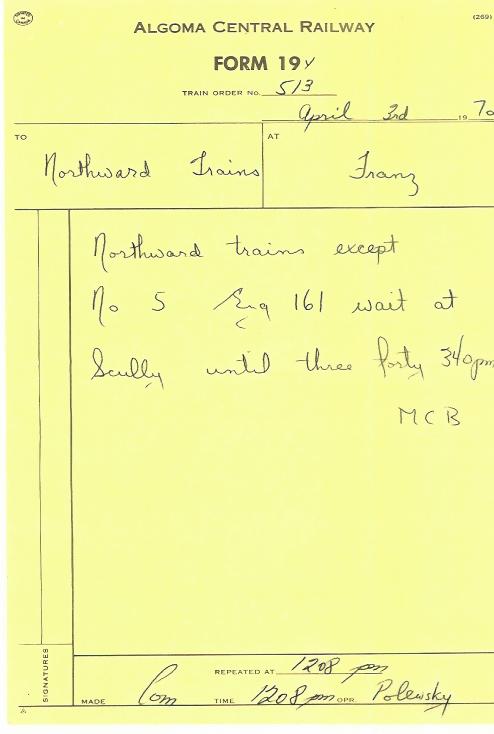 (269)
ALGOMA CENTRAL RAILWAY
FORM 19Y
TRAIN ORDER NO. 513
April 3rd 1970
TO
AT
Northward Trains
Franz
Northward trains except
No 5 Eng 161 wait at
Scully until three forty 340pm
MCB
SIGNATURES
REPEATED AT 1208 pm
MADE Com TIME 1208 pm OPR. Polewsky